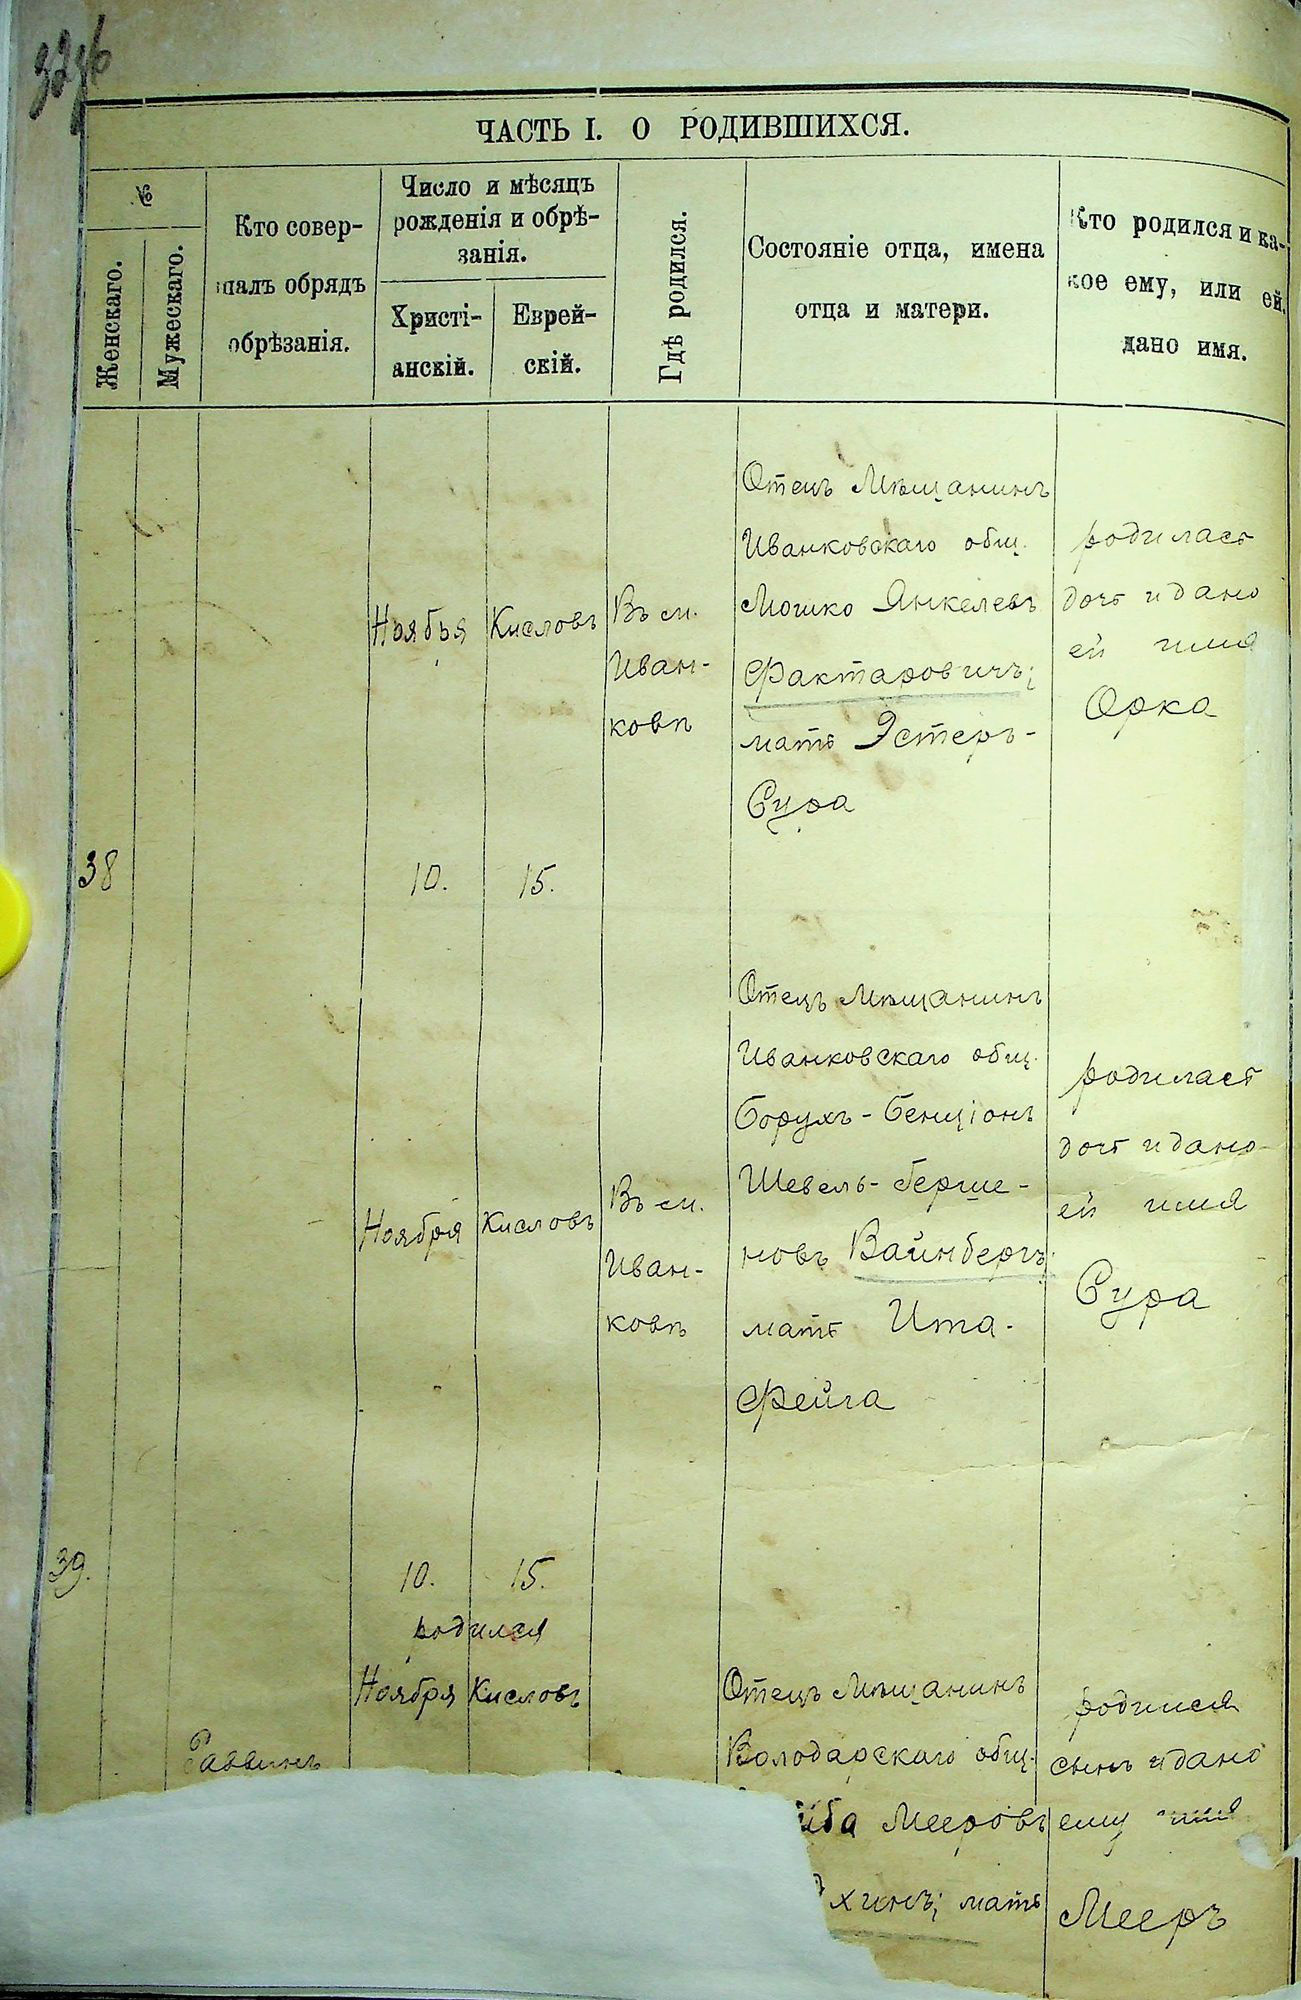 ЧАСТЬ I. О РОДИВШИХСЯ.
№
Женскаго.
Мужескаго.
Кто совер-
шалъ обрядъ
обрѣзанія.
Число и мѣсяцъ
рожденія и обрѣ-
занія.
Христі-
анскій.
Еврей-
скій.
Гдѣ родился.
Состояніе отца, имена
отца и матери.
Кто родился и ка-
кое ему, или ей.
дано имя.
38
Ноября
10.
Кисловъ
15.
Въ м.
Иван-
ковѣ
Отецъ Мѣщанинъ
Иванковскаго общ.
Мошко Янкелевъ
Фактаровичъ;
мать Эстеръ-
Сура
родилась
дочь и дано
ей имя
Орка
39.
Ноября
10.
Кисловъ
15.
Въ м.
Иван-
ковѣ
Отецъ Мѣщанинъ
Иванковскаго общ.
Борухъ-Бенціонъ
Шевель-Берше-
новъ Вайнбергъ;
мать Ита-
Фейга
родилась
дочь и дано
ей имя
Сура
Раввинъ
родился
Ноября
Кисловъ
Отецъ Мѣщанинъ
Володарскаго общ.
Мееровъ
хинъ; мать
родился
сынъ и дано
ему имя
Мееръ